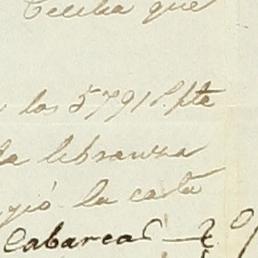 Cecilia que
los 5791 S. pte
la libranza
gió la carta
Cabarcas